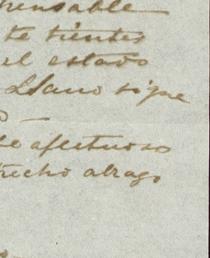 pensable
te tientes
el estado
Llano sigue
de afectuoso
trecho abrazo